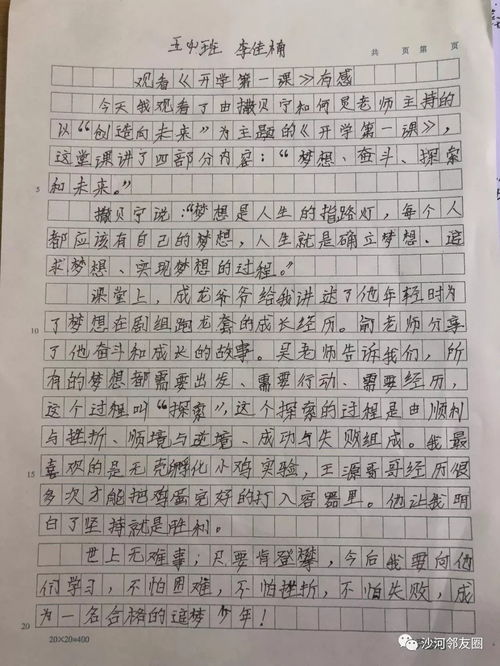 五4班 李佳楠
共 页 第 页
观看《开学第一课》有感
今天我观看了由撒贝宁和何炅老师主持的
以“创造向未来”为主题的《开学第一课》，
这堂课讲了四部分内容：“梦想、奋斗、探索
5 和未来。”
撒贝宁说：“梦想是人生的指路灯，每个人
都应该有自己的梦想，人生就是确立梦想、追
求梦想、实现梦想的过程。”
课堂上，成龙爷爷给我讲述了他年轻时为
10 了梦想在剧组跑龙套的成长经历。俞老师分享
了他奋斗和成长的故事。吴老师告诉我们，所
有的梦想都需要出发、需要行动、需要经历，
这个过程叫“探索”，这个探索的过程是由顺利
与挫折、顺境与逆境、成功与失败组成。我最
15 喜欢的是无壳孵化小鸡实验，王源哥哥经历很
多次才能把鸡蛋完好的打入容器里。他让我明
白了坚持就是胜利。
世上无难事；只要肯登攀，今后我要向他
们学习，不怕困难，不怕挫折，不怕失败，成
20 为一名合格的追梦少年！
20×20=400
沙河邻友圈